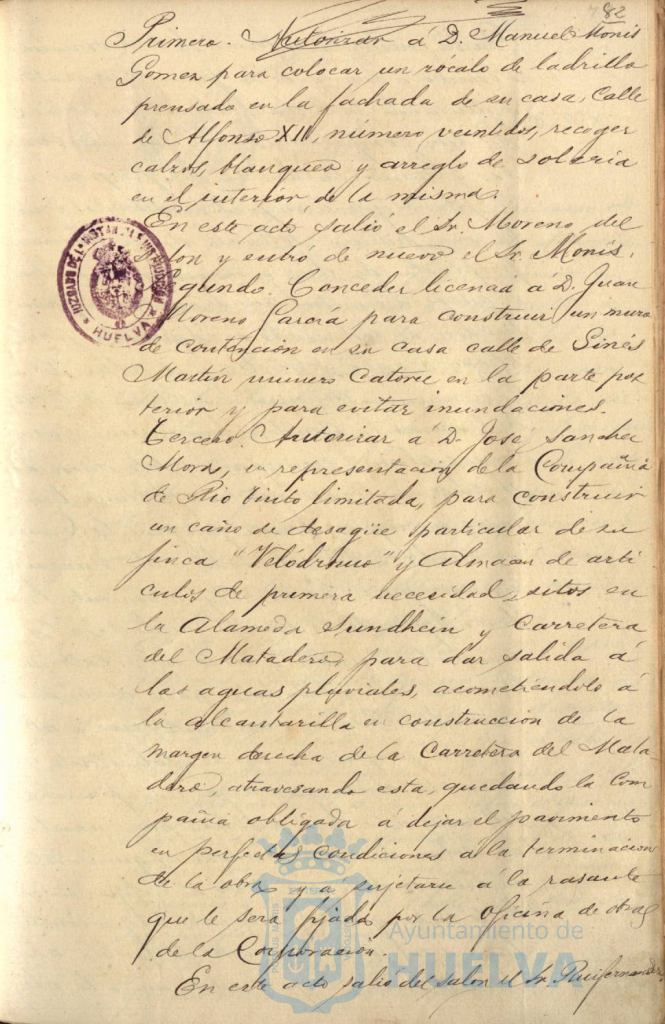 82
Primero. Autorizar á D. Manuel Monis
Gomez para colocar un zócalo de ladrillo
prensado en la fachada de su casa, Calle
de Alfonso XII, número veintidos, recoger
calzos, blanqueo y arreglo de soleria
en el interior de la misma.
En este acto salió el Sr. Moreno del
Salon y entró de nuevo el Sr. Monís.
Segundo. Conceder licencia á D. Juan
Moreno García para construir un muro
de contención en su casa calle de Ginés
Martín número Catorce en la parte pos
terior y para evitar inundaciones.
Tercero. Autorizar á D. José Sanchez
Mora, en representación de la Compañia
de Rio Tinto limitada, para construir
un caño de desagüe particular de su
finca "Velódromo" y Almacen de arti
culos de primera necesidad, sitos en
la Alameda Sundhein y Carretera
del Matadero, para dar salida á
las aguas pluviales, acometiéndolo á
la alcantarilla en construccion de la
margen derecha de la Carretera del Mata-
dero, atravesando esta, quedando la Com
pañia obligada á dejar el pavimento
en perfectas condiciones a la terminacion
de la obra y a sujetarse á la rasante
que le será fijada por la oficina de obras
de la Corporación.
En este acto salio del salon el Sr.
HUELVA
Ayuntamiento de
HUELVA